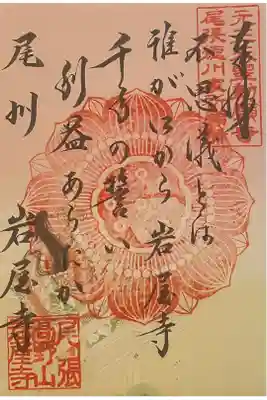 奉拝
不思議とは
誰が 岩屋寺
千手の誓い
利益あらたか
尾州 岩屋寺
尾張
高野山
岩屋寺